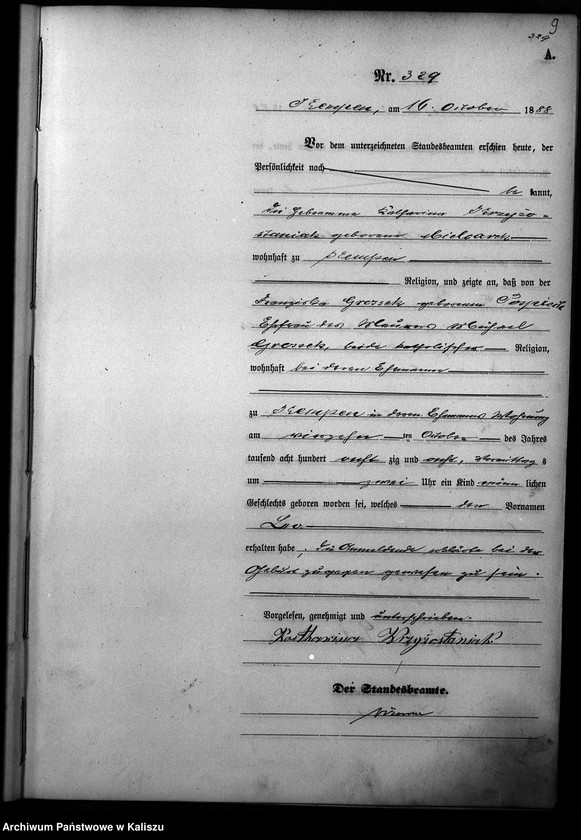 9
329
A.
Nr. 329
Kempen, am 16. October 1888
Vor dem unterzeichneten Standesbeamten erschien heute, der
Persönlichkeit nach
be kannt,
die Hebamme Katharina Krzyżo=
staniak geborene
wohnhaft zu Kempen
Religion, und zeigte an, daß von der
Franziska Grozek geborenen Pospiech
Ehefrau des Maurers Michael
Grozek, beide katholischer Religion,
wohnhaft bei deren Ehemanne
zu Kempen in deren Ehemannes Wohnung
am vierzehn ten October des Jahres
tausend acht hundert acht zig und acht, Vormittag s
um zwei Uhr ein Kind männ lichen
Geschlechts geboren worden sei, welches den Vornamen
Leo
erhalten habe, die Anmeldende erklärte bei der
Geburt zugegen gewesen zu sein.
Vorgelesen, genehmigt und unterschrieben.
Katharina Krzyżostaniak
Der Standesbeamte.
Archiwum Państwowe w Kaliszu